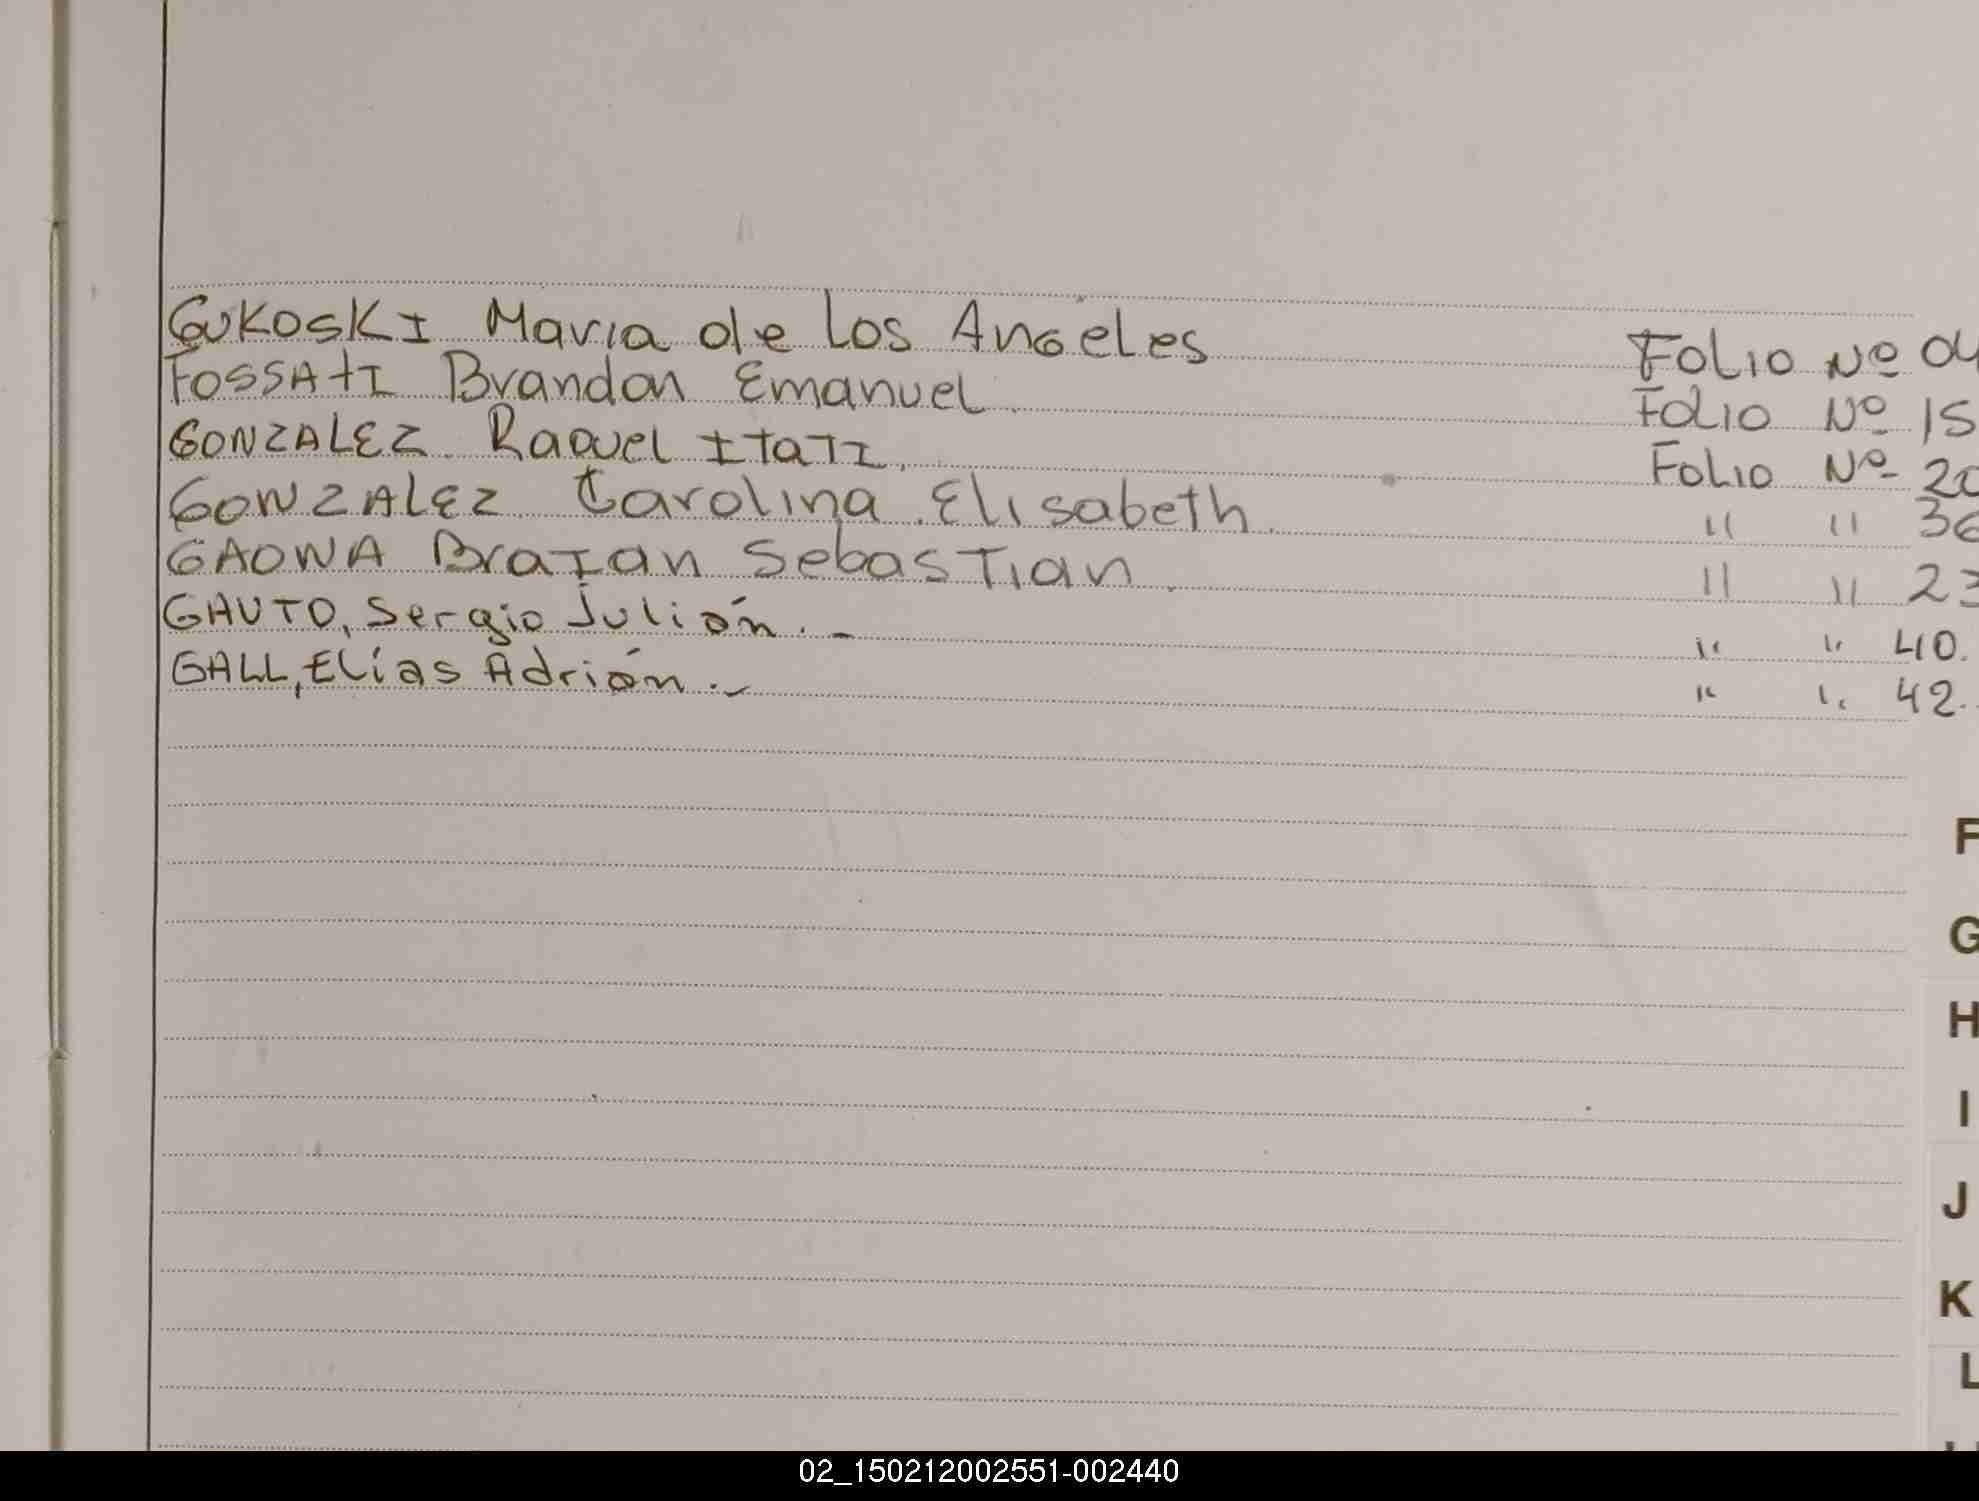 GUKOSKI Maria de los Angeles Folio Nº 04
FOSSATI Brandon Emanuel Folio Nº 15
GONZALEZ Raquel ITATI. Folio Nº 20
GONZALEZ Carolina Elisabeth. " " 36
GAONA Braian Sebastian. " " 23
GAUTO, Sergio Julián. - " " 40.
GALL, Elías Adrián. - " " 42.
F
G
H
I
J
K
L
02_150212002551-002440